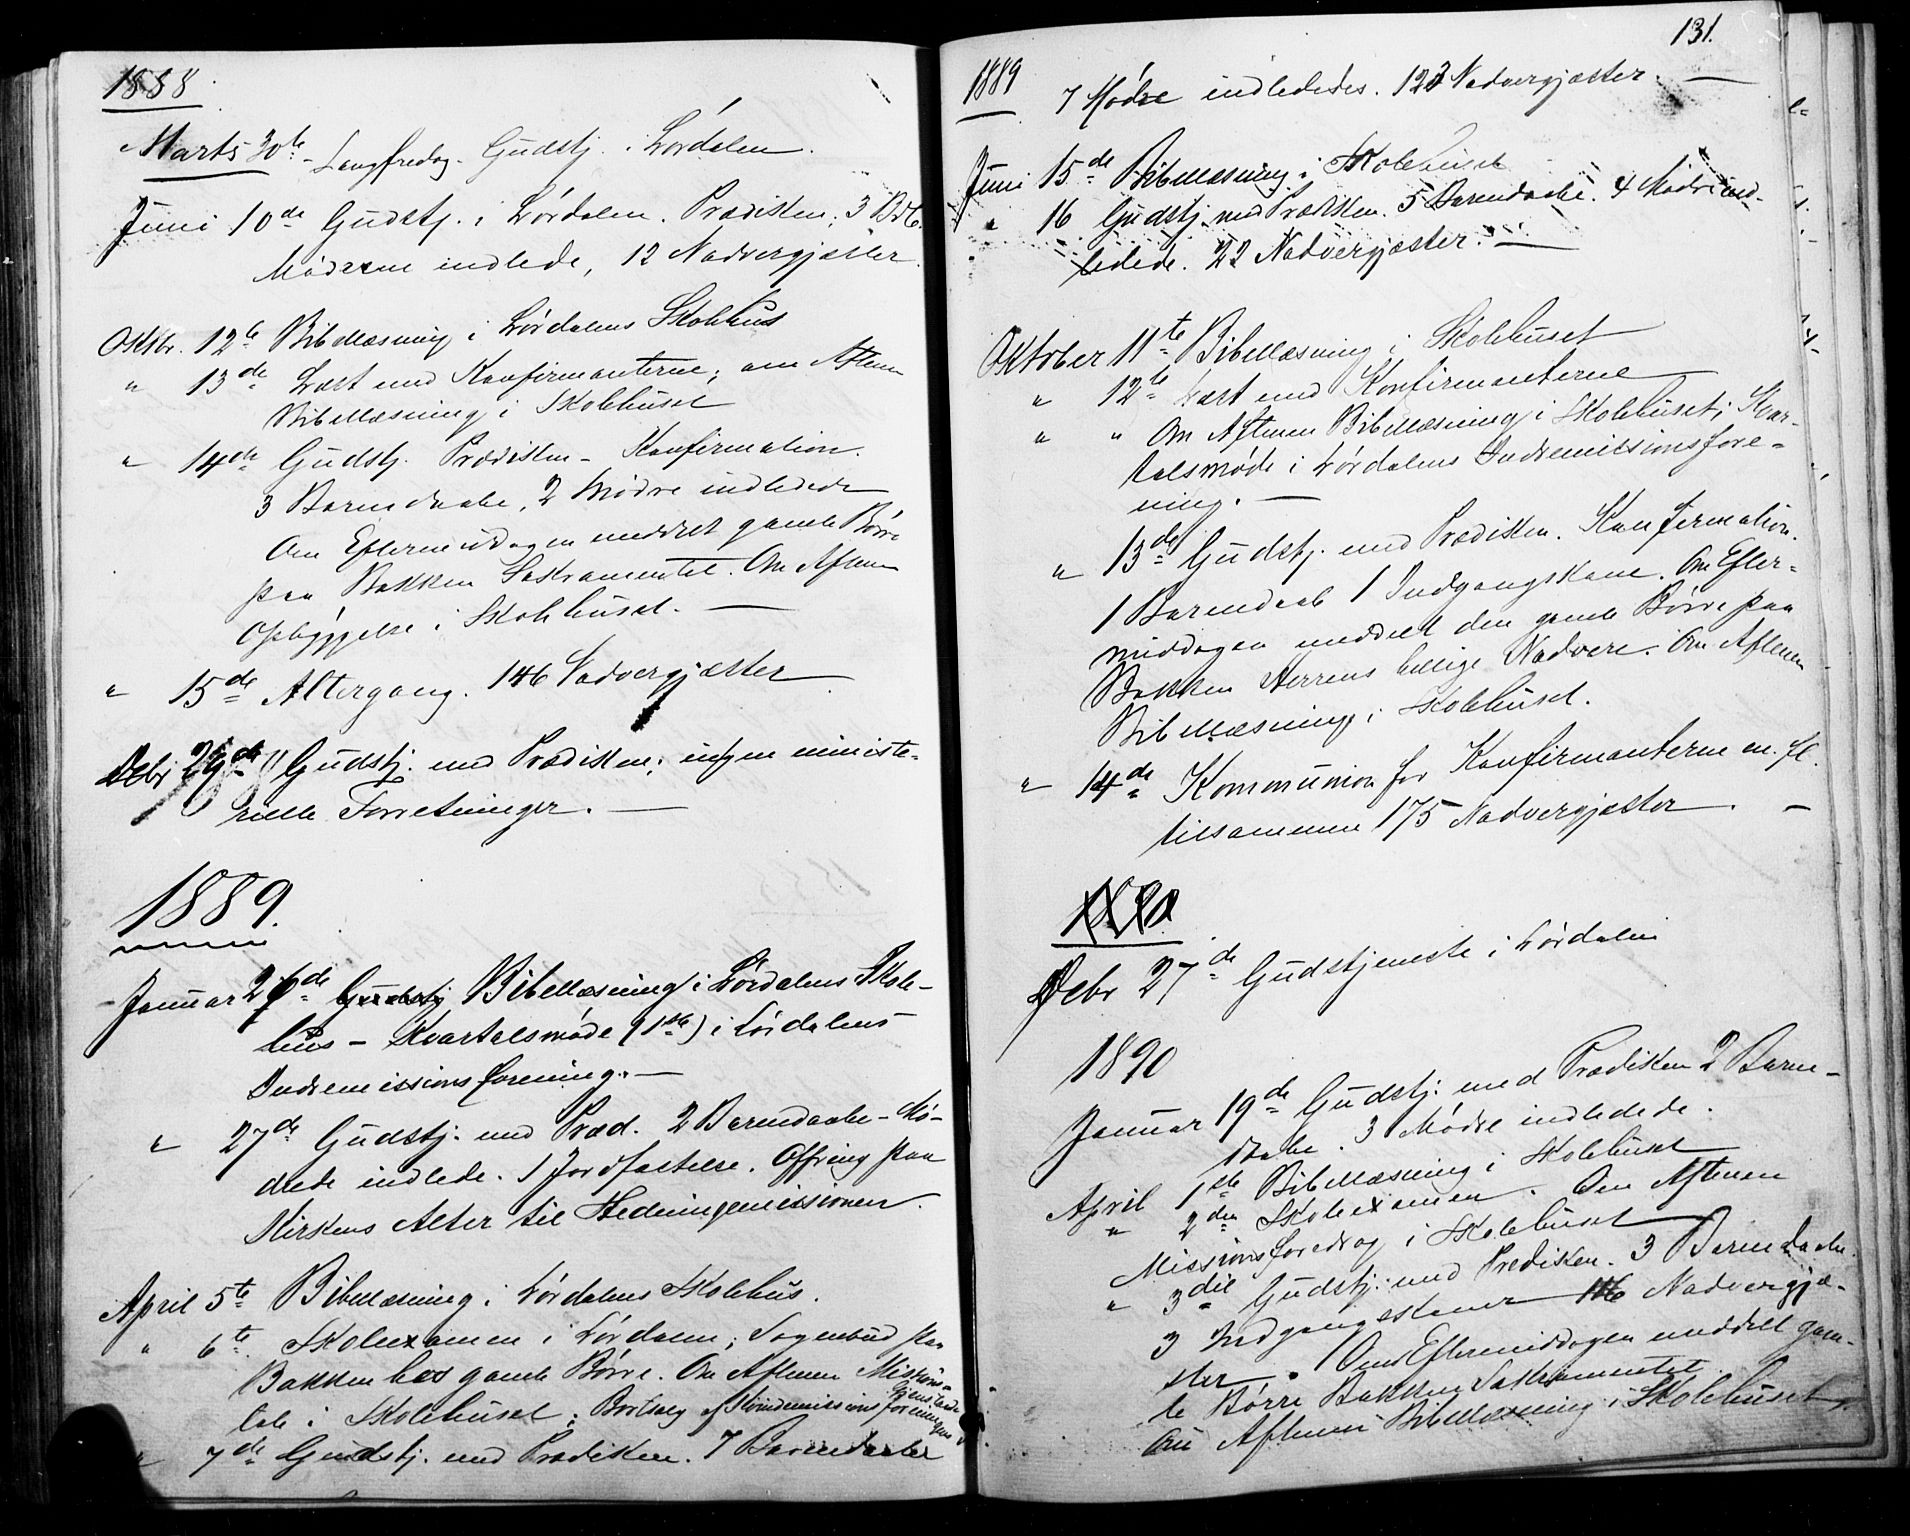 1888
Marts 30te - Langfredag. Gudstj. i Lørdalen.
Juni 10de Gudstj. i Lørdalen. Prædiken; 3 Bdb.
Mødrene indlede, 12 Nadvergjæster.
Oktbr. 12te Bibellæsning i Lørdalens Skolehus
" 13de Læst med Konfirmanterne; om Aftenen
Bibellæsning i Skolehuset
" 14de Gudstj. Prædiken - Konfirmation.
3 Barnedaabe, 2 Mødre indledede
Om Eftermiddagen meddelt gamle Børre
paa Bakken Sakramentet. Om Aftenen
Opbyggelse i Skolehuset. —
" 15de Altergang. 146 Nadvergjæster
Debr 29de Gudstj. med Prædiken; ingen ministe-
rielle Forretninger. —
1889.
Januar 26de Gudstj Bibellæsning i Lørdalens Skole-
hus - Kvartalsmøde (1ste) i Lørdalens
Indremissionsforening. —
" 27de Gudstj. med Præd. 2 Barnedaabe - Mø-
drede indlede. 1 Jordfæstelse. Offring paa
Kirkens Alter til Hedningemissionen.
April 5te Bibellæsning i Lørdalens Skolehus.
" 6te Skoleexamen i Lørdalen; Sognebud paa
Bakken hos gamle Børre. Om Aftenen Missions-
tale i Skolehuset; Bortsalg af Kvindemissionsforeningens
" 7de Gudstj. med Prædiken. 7 Barnedaabe
131.
1889
7 Mødre indlededes. 123 Nadvergjæster. —
Juni 15de Bibellæsning i Skolehuset
" 16 Gudstj. med Prædiken. 5 Barnedaabe. 4 Mødre ind-
ledede. 22 Nadvergjæster. —
Oktober 11te Bibellæsning i Skolehuset
" 12te Læst med Konfirmanterne
" " Om Aftenen Bibellæsning i Skolehuset; Kvar-
talsmøde i Lørdalens Indremissionsfore-
ning. —
" 13de Gudstj. med Prædiken. Konfirmation.
1 Barnedaab 1 Indgangskone. Om Efter-
middagen meddelt den gamle Børre paa
Bakken Herrens hellige Nadvere. Om Aftenen
Bibellæsning i Skolehuset.
" 14de Kommunion for Konfirmanterne m. fl.
tilsammen 175 Nadvergjæster. —
1890
Debr 27de Gudstjeneste i Lørdalen
1890
Januar 19de Gudstj. med Prædiken 2 Barne-
daabe. 3 Mødre indledede.
April 1ste Bibellæsning i Skolehuset
" 2den Skoleexamen. Om Aftenen
Missionsforedrag i Skolehuset
" 3die Gudstj. med Prediken. 3 Barnedaabe.
3 Indgangskoner 116 Nadvergjæ-
ster. Om Eftermiddagen meddelt gam-
le Børre Bakken Sakramentet.
Om Aftenen Bibellæsning i Skolehuset.